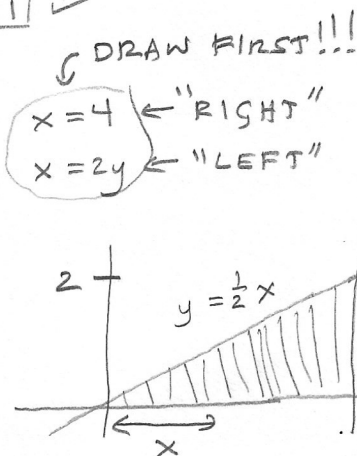 DRAW FIRST!!!
x = 4 ← "RIGHT"
x = 2y ← "LEFT"
2
y = ½ x
x